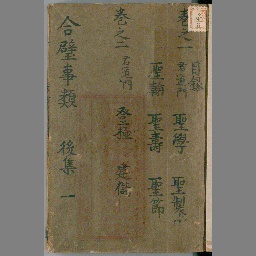 目錄
卷之一 君道門 聖學 聖製
聖翰 聖壽 聖節
卷之二 君道門 登極 建儲
合璧事類 後集 一